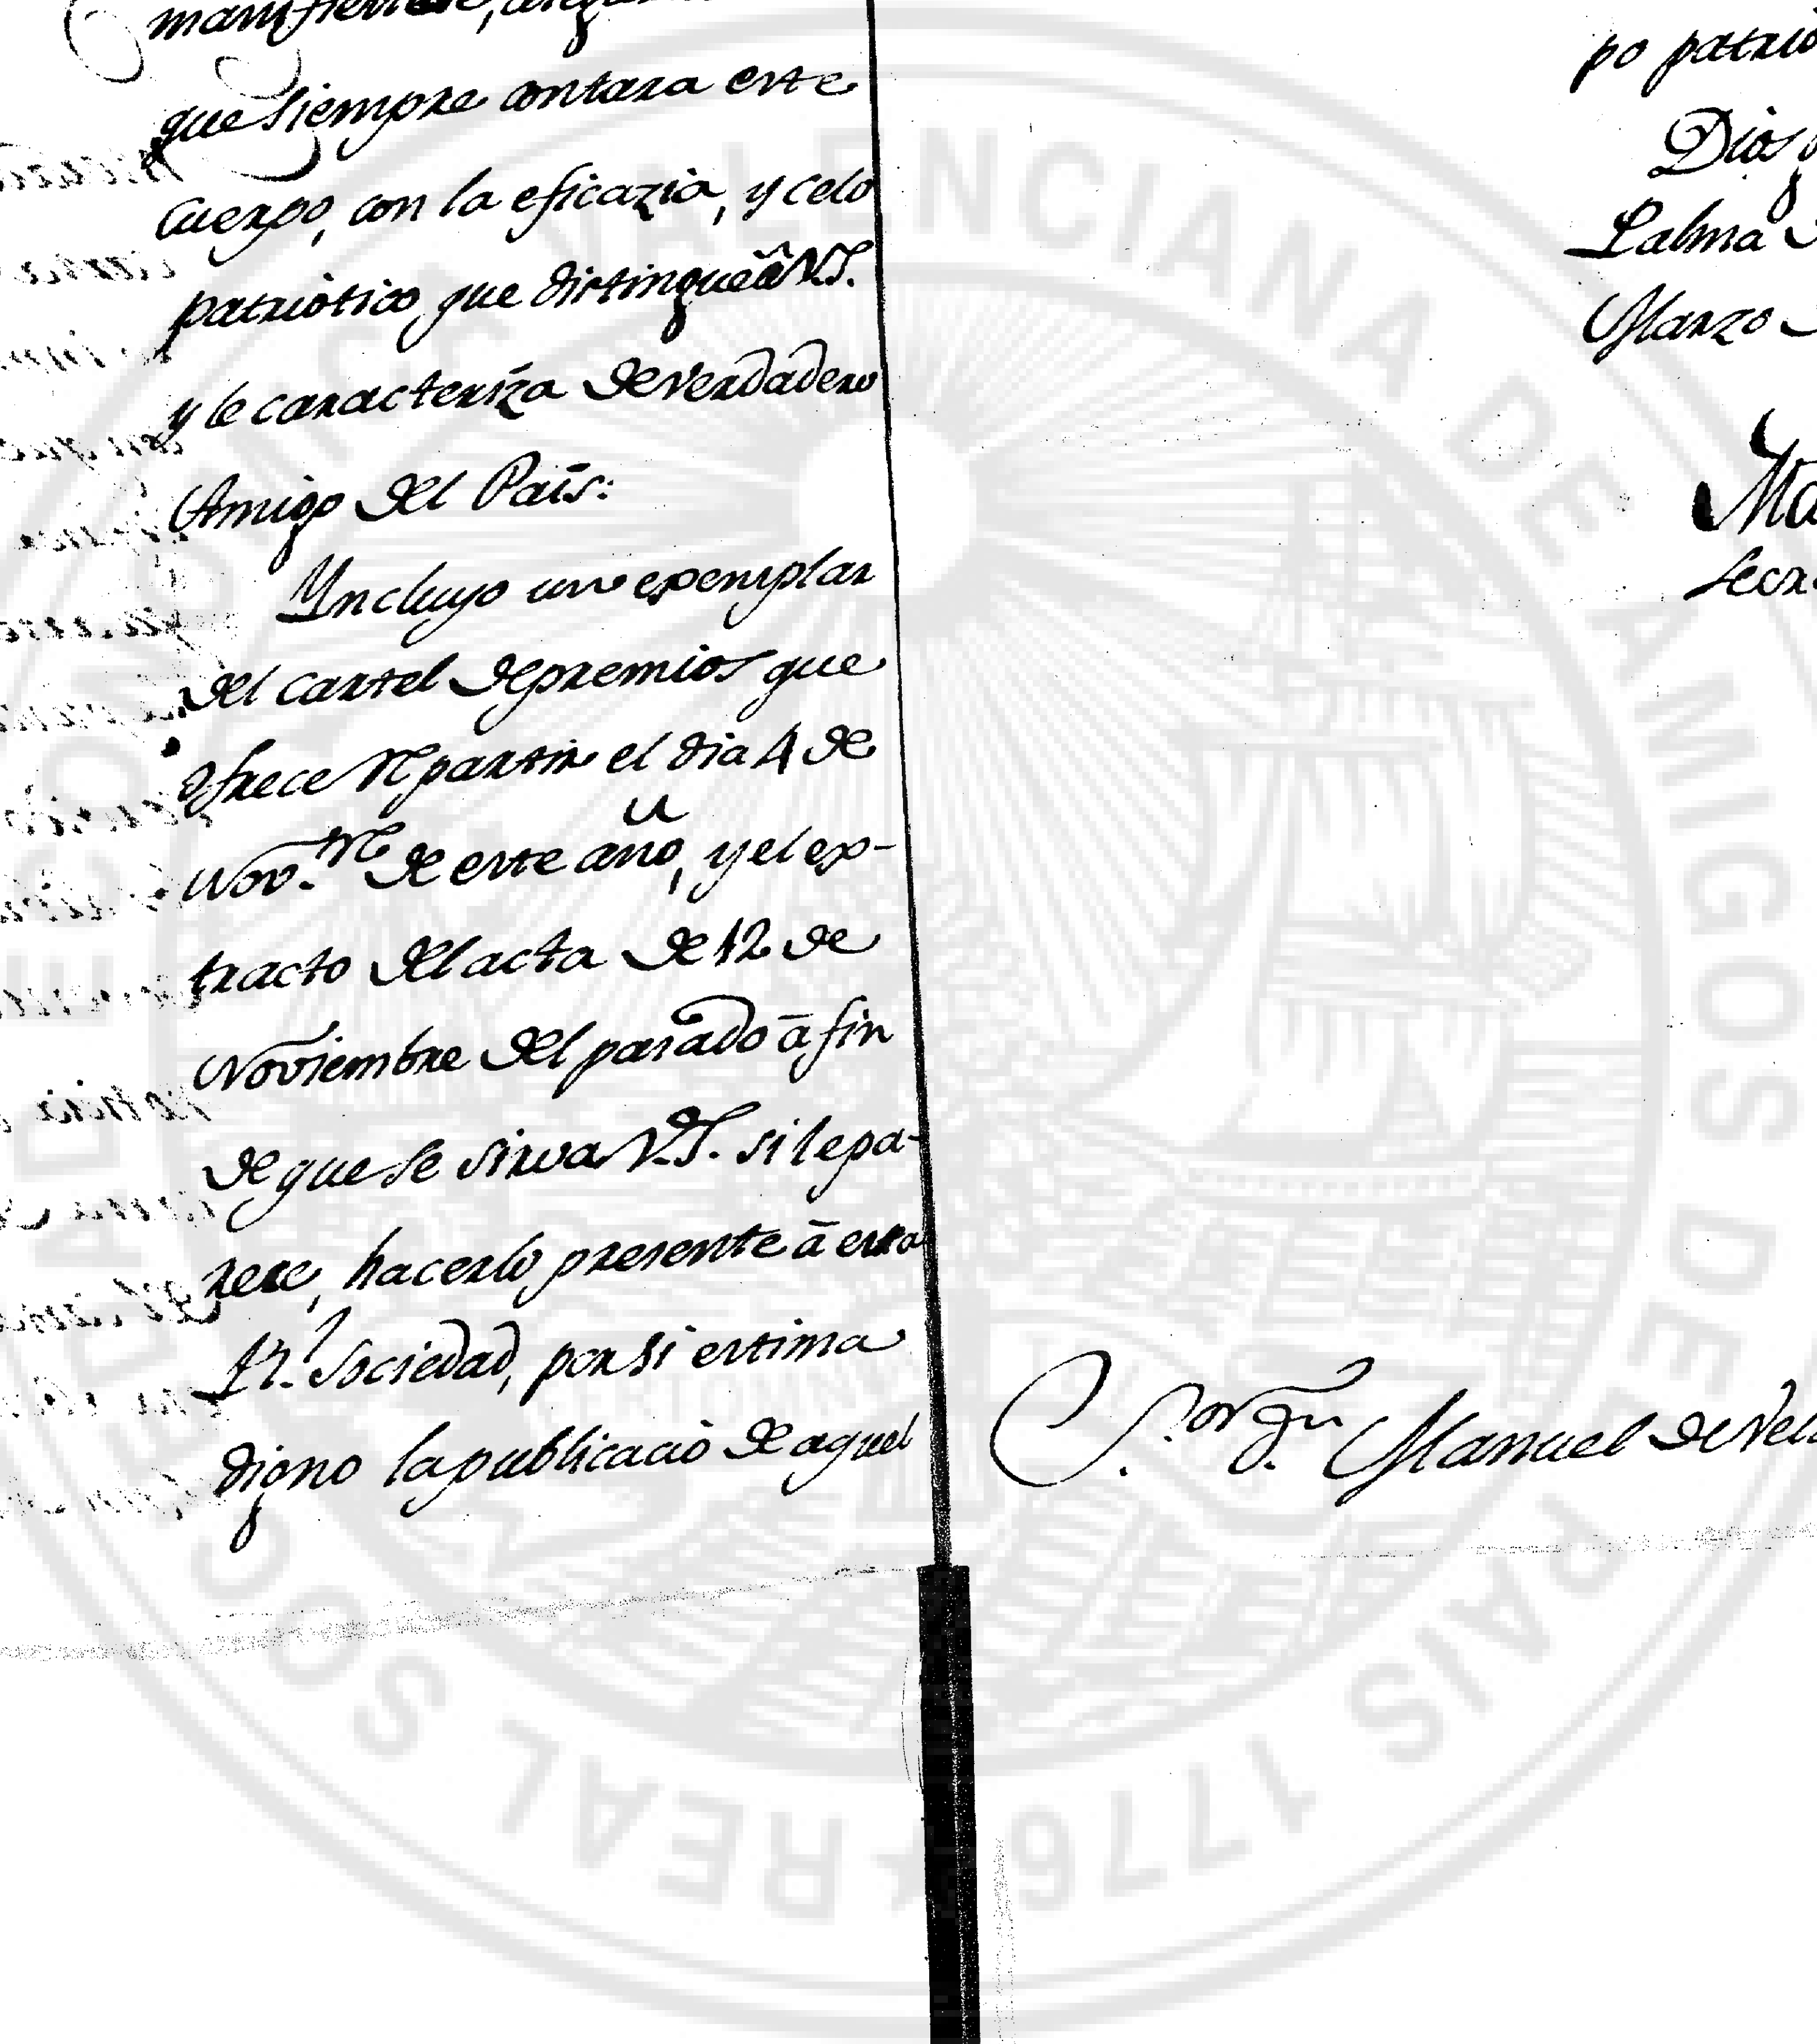 que siempre contara este
Cuerpo, con la eficazia, y celo
patriótico que distingue â V.S.
y le caracteriza de verdadero
Amigo del País:
Yncluyo un exemplar
del cartel de premios que
ofrece repartir el dia 4 de
Nov.re de este año, y el ex-
tracto del acta de 12 de
Noviembre del pasado ā fin
de que se sirva V.S. si le pa-
rece, hacerlo presente ā esa
Rl. Sociedad, por si estima
digno la publicació de aquel
po patrio
Dios
Palma
Marzo
Ma
Secr
S.or D.n Manuel de Vel
REAL SOCIEDAD ECONOMICA VALENCIANA DE AMIGOS DEL PAIS 1776